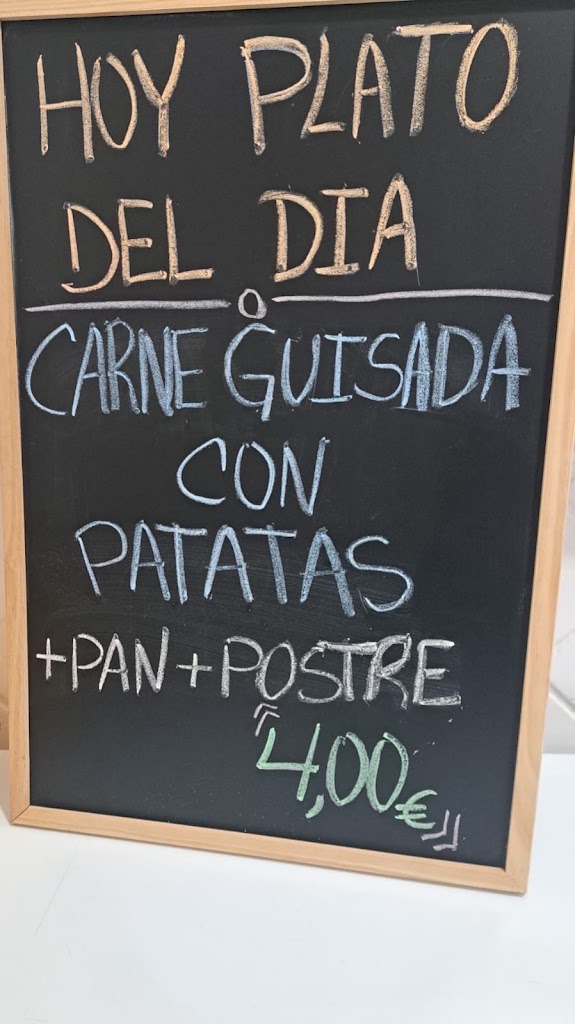 HOY PLATO
DEL DIA
CARNE GUISADA
CON
PATATAS
+PAN+POSTRE
4,00€